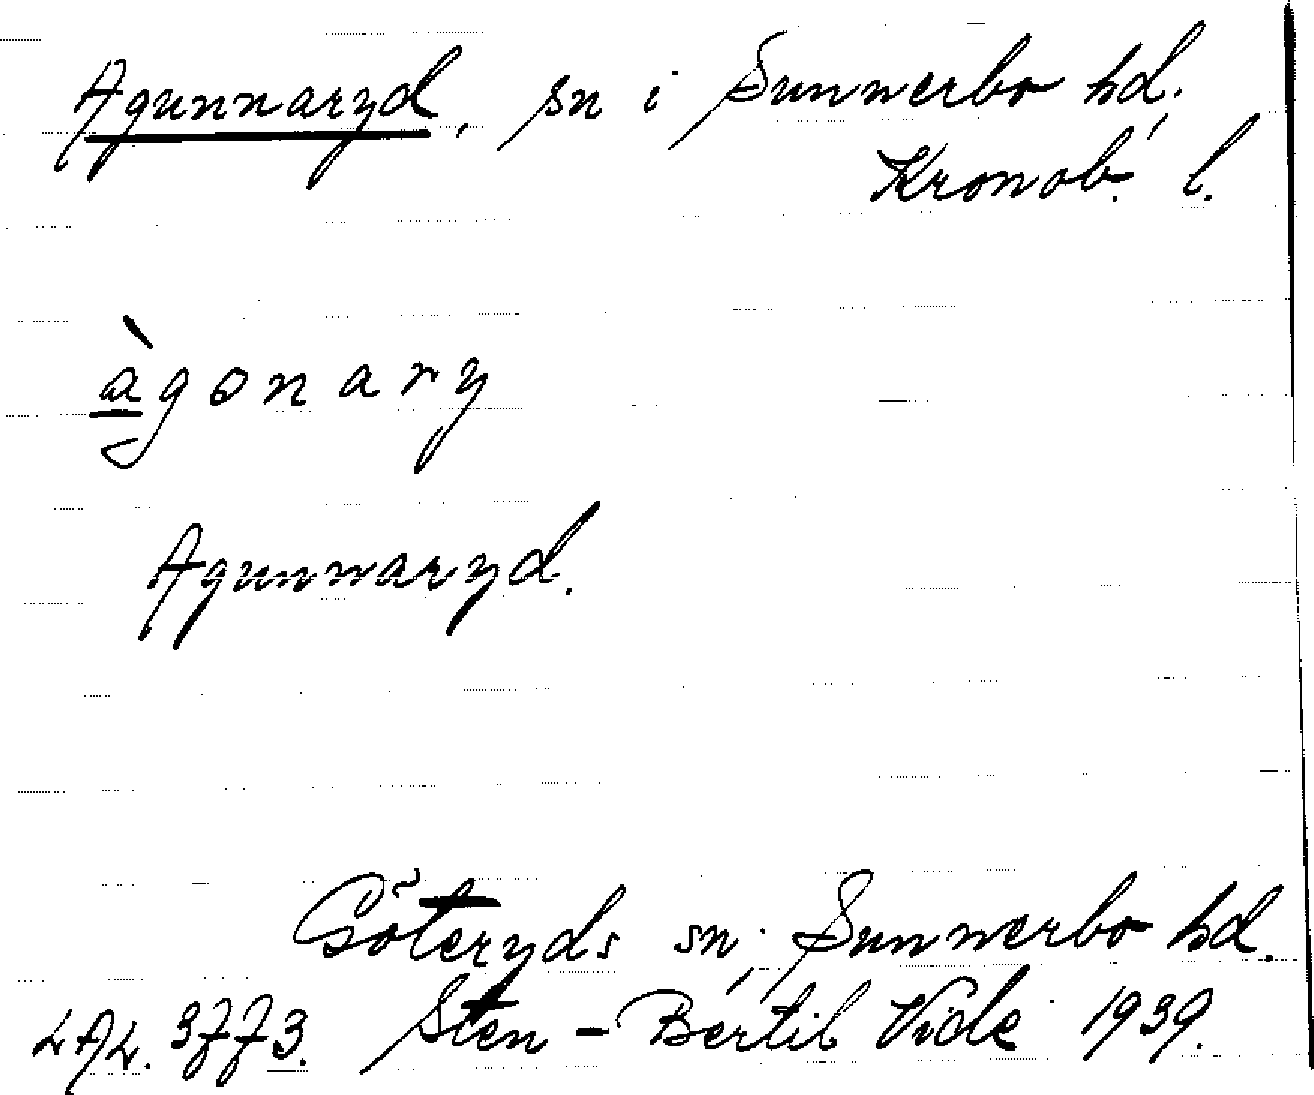 Agunnaryd, sn i Sunnerbo hd.
Kronob. l.
àgonary
Agunnaryd.
Göteryds sn, Sunnerbo hd.
LAL. 3773. Sten-Bertil Vide 1939.